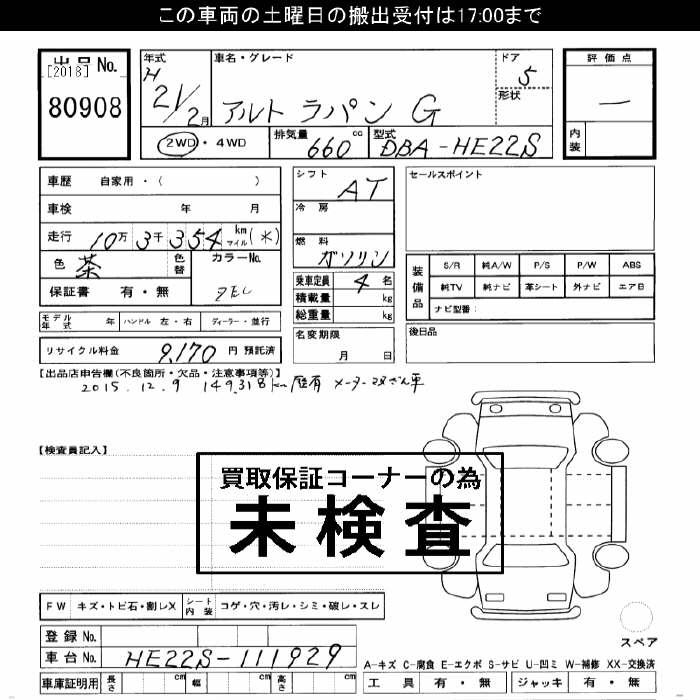 この車両の土曜日の搬出受付は17:00まで
出品 No.
[2018]
80908
年式
H 21/2月
車名・グレード
アルト ラパン G
ドア
5
形状
評価点
一
内装
2WD・4WD
排気量
660 cc
型式
DBA-HE22S
車歴 自家用・( )
車検 年 月
走行 10万 3千 354 km マイル (*)
色 茶
色替
カラーNo.
ZEU
保証書 有・無
シフト
AT
冷房
燃料
ガソリン
乗車定員 4 名
積載量 kg
総重量 kg
セールスポイント
装備品
S/R 純A/W P/S P/W ABS
純TV 純ナビ 革シート 外ナビ エアB
ナビ型番:
モデル年式 年 ハンドル 左・右 ディーラー・並行
名変期限
月 日
後日品
リサイクル料金 9,170 円 預託済
【出品店申告欄(不良箇所・欠品・注意事項等)】
2015.12.9 149,318km 歴有 メーター改ざん車
【検査員記入】
買取保証コーナーの為
未検査
FW キズ・トビ石・割レX シート内装 コゲ・穴・汚レ・シミ・破レ・スレ
スペア
登録 No.
車台 No. HE22S-111929
A-キズ C-腐食 E-エクボ S-サビ U-凹ミ W-補修 XX-交換済
車庫証明用 長さ cm 幅 cm 高さ cm
工具 有・無 ジャッキ 有・無